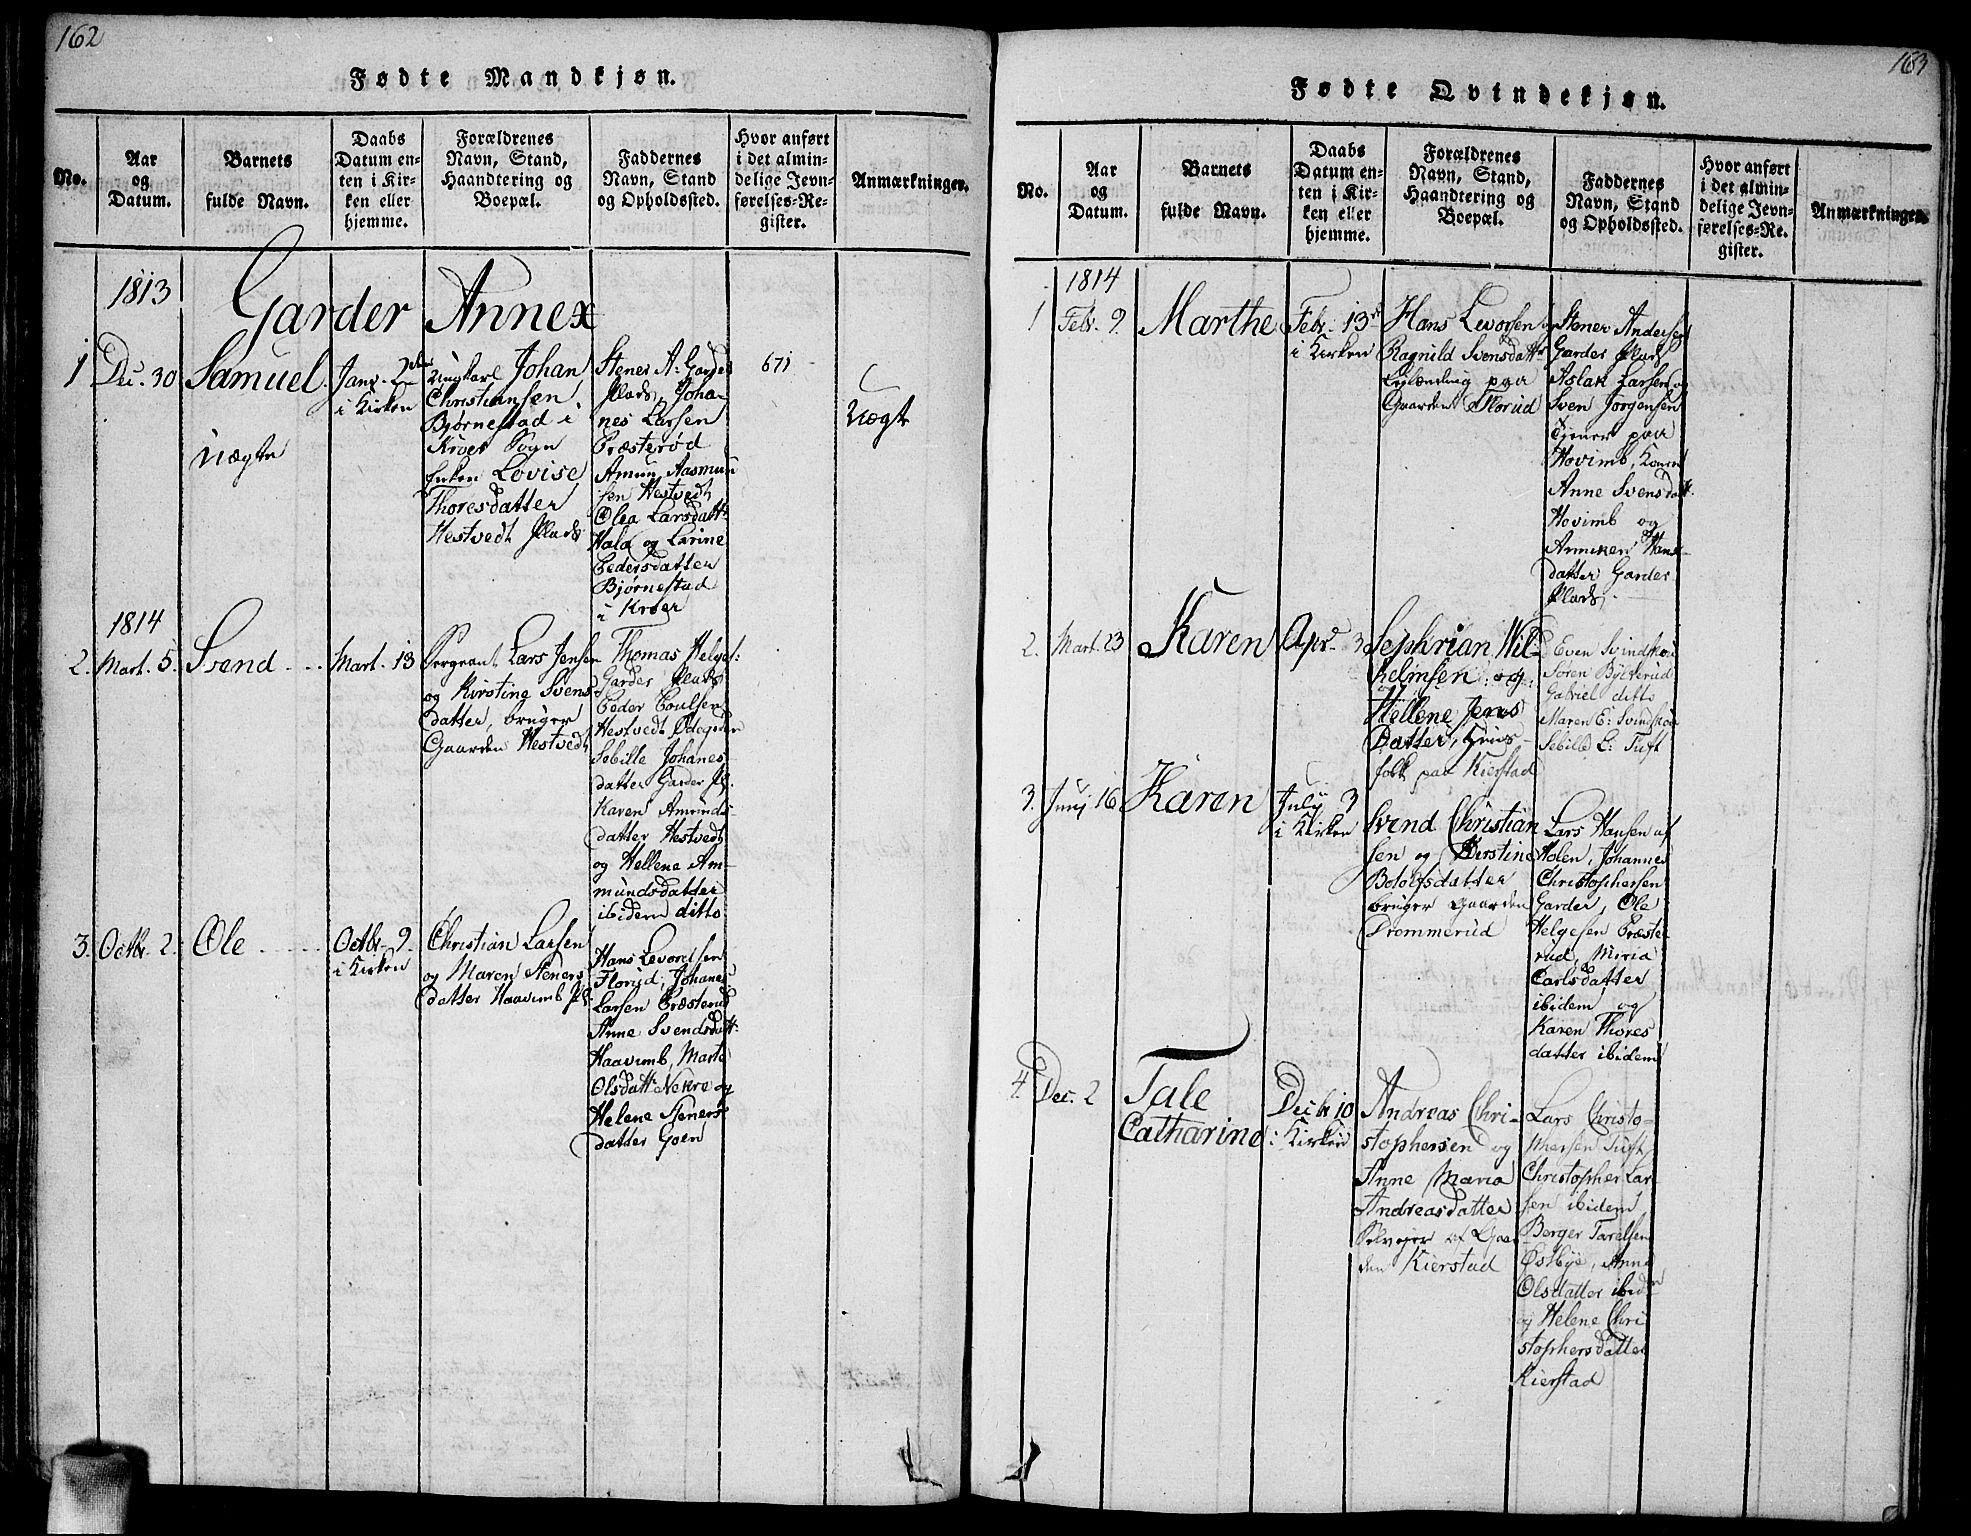 162
Fødte Mandkjøn.
No.
Aar
og
Datum.
Barnets
fulde Navn.
Daabs
Datum en-
ten i Kir-
ken eller
hjemme.
Forældrenes
Navn, Stand,
Haandtering og
Boepæl.
Faddernes
Navn, Stand
og Opholdssted.
Hvor anført
i det almin-
delige Jevn-
førelses-Re-
gister.
Anmærkninger.
1813
Garder Annex
1
Dec. 30
Samuel
uægte
Janr. 2den
i Kirken
Ungkarl Johan
Christiansen
Bjørnestad i
Kroer Sogn
Enken Lovise
Thoresdatter
Hestvedt Plads
Stener A. Garder
Plads, Joha-
nes Larsen
Præsterød
Amun Aasmun
sen Hestvedt
Olea Larsdattr
Hala og Larine
Pedersdatter
Bjørnestad
i Kroer
671
Uægt
1814
2.
Mart. 5.
Svend
Mart. 13
Sergeant Lars Jensen
og Kirstine Svens
datter, bruger
Gaarden Hestvedt
Thomas Helges:
Garder Plads
Peder Poulsen
Hestvedt Ødegården
Sebille Johanes
datter Garder Pl.
Karen Amunds
datter Hestvedt
og Hellene Am-
mundsdatter
ibidem ditto
3.
Octbr. 2.
Ole
Octbr. 9.
i Kirken
Christian Larsen
og Maren Steners
datter Haavimb Pl.
Hans Levorsen
Florud, Johanes
Larsen Præsterud
Anne Svendsdatt:
Haavimb, Marte
Olsdattr Nekre og
Helene Steners
datter Goen
163
Fødte Qvindekjøn.
No.
Aar
og
Datum.
Barnets
fulde Navn.
Daabs
Datum en-
ten i Kir-
ken eller
hjemme.
Forældrenes
Navn, Stand,
Haandtering og
Boepæl.
Faddernes
Navn, Stand
og Opholdssted.
Hvor anført
i det almin-
delige Jevn-
førelses-Re-
gister.
Anmærkninger.
1814
1
Febr. 9
Marthe
Febr. 13
i Kirken
Hans Levorsen og
Ragnild Svensdattr
Leilænding paa
Gaarden Florud
Stener Andersen
Garder Plads
Aslak Larsen og
Sven Jørgensen
tjener paa
Hovimb, Konen
Anne Svensdatt.
Hovimb og
Anniken Hans-
datter Garder
Plads.
2.
Mart. 23
Karen
Apr. 3
Sephrian Wil-
helmsen og
Hellene Jens
Datter, Huus-
folk paa Kierstad
Even Svindskou
Søren Bylterud
Gabriel ditto
Maren E: Svindskou
Sebille L: Tuft
3.
Junj 16
Karen
July 3
i Kirken
Svend Christian
sen og Kirstine
Botolfsdatter
bruger Gaarden
Drommerud
Lars Hansen af
Holen, Johannes
Christophersen
Garder, Ole
Helgesen Præste-
rud, Miria
Carlsdatter
ibidem og
Karen Thores
datter ibidem
4.
Dec. 2
Tale
Catharine
Decbr 10
i Kirken
Andreas Chri-
stophersen og
Anne Maria
Andreasdatter
Selvejer af Gaar
den Kierstad
Lars Christo-
phersen Tuft
Christopher Lar
sen ibidem
Berger Tarelsen
Østbye, Anne
Olsdatter ibidem
og Helene Chri
stophersdatter
Kierstad